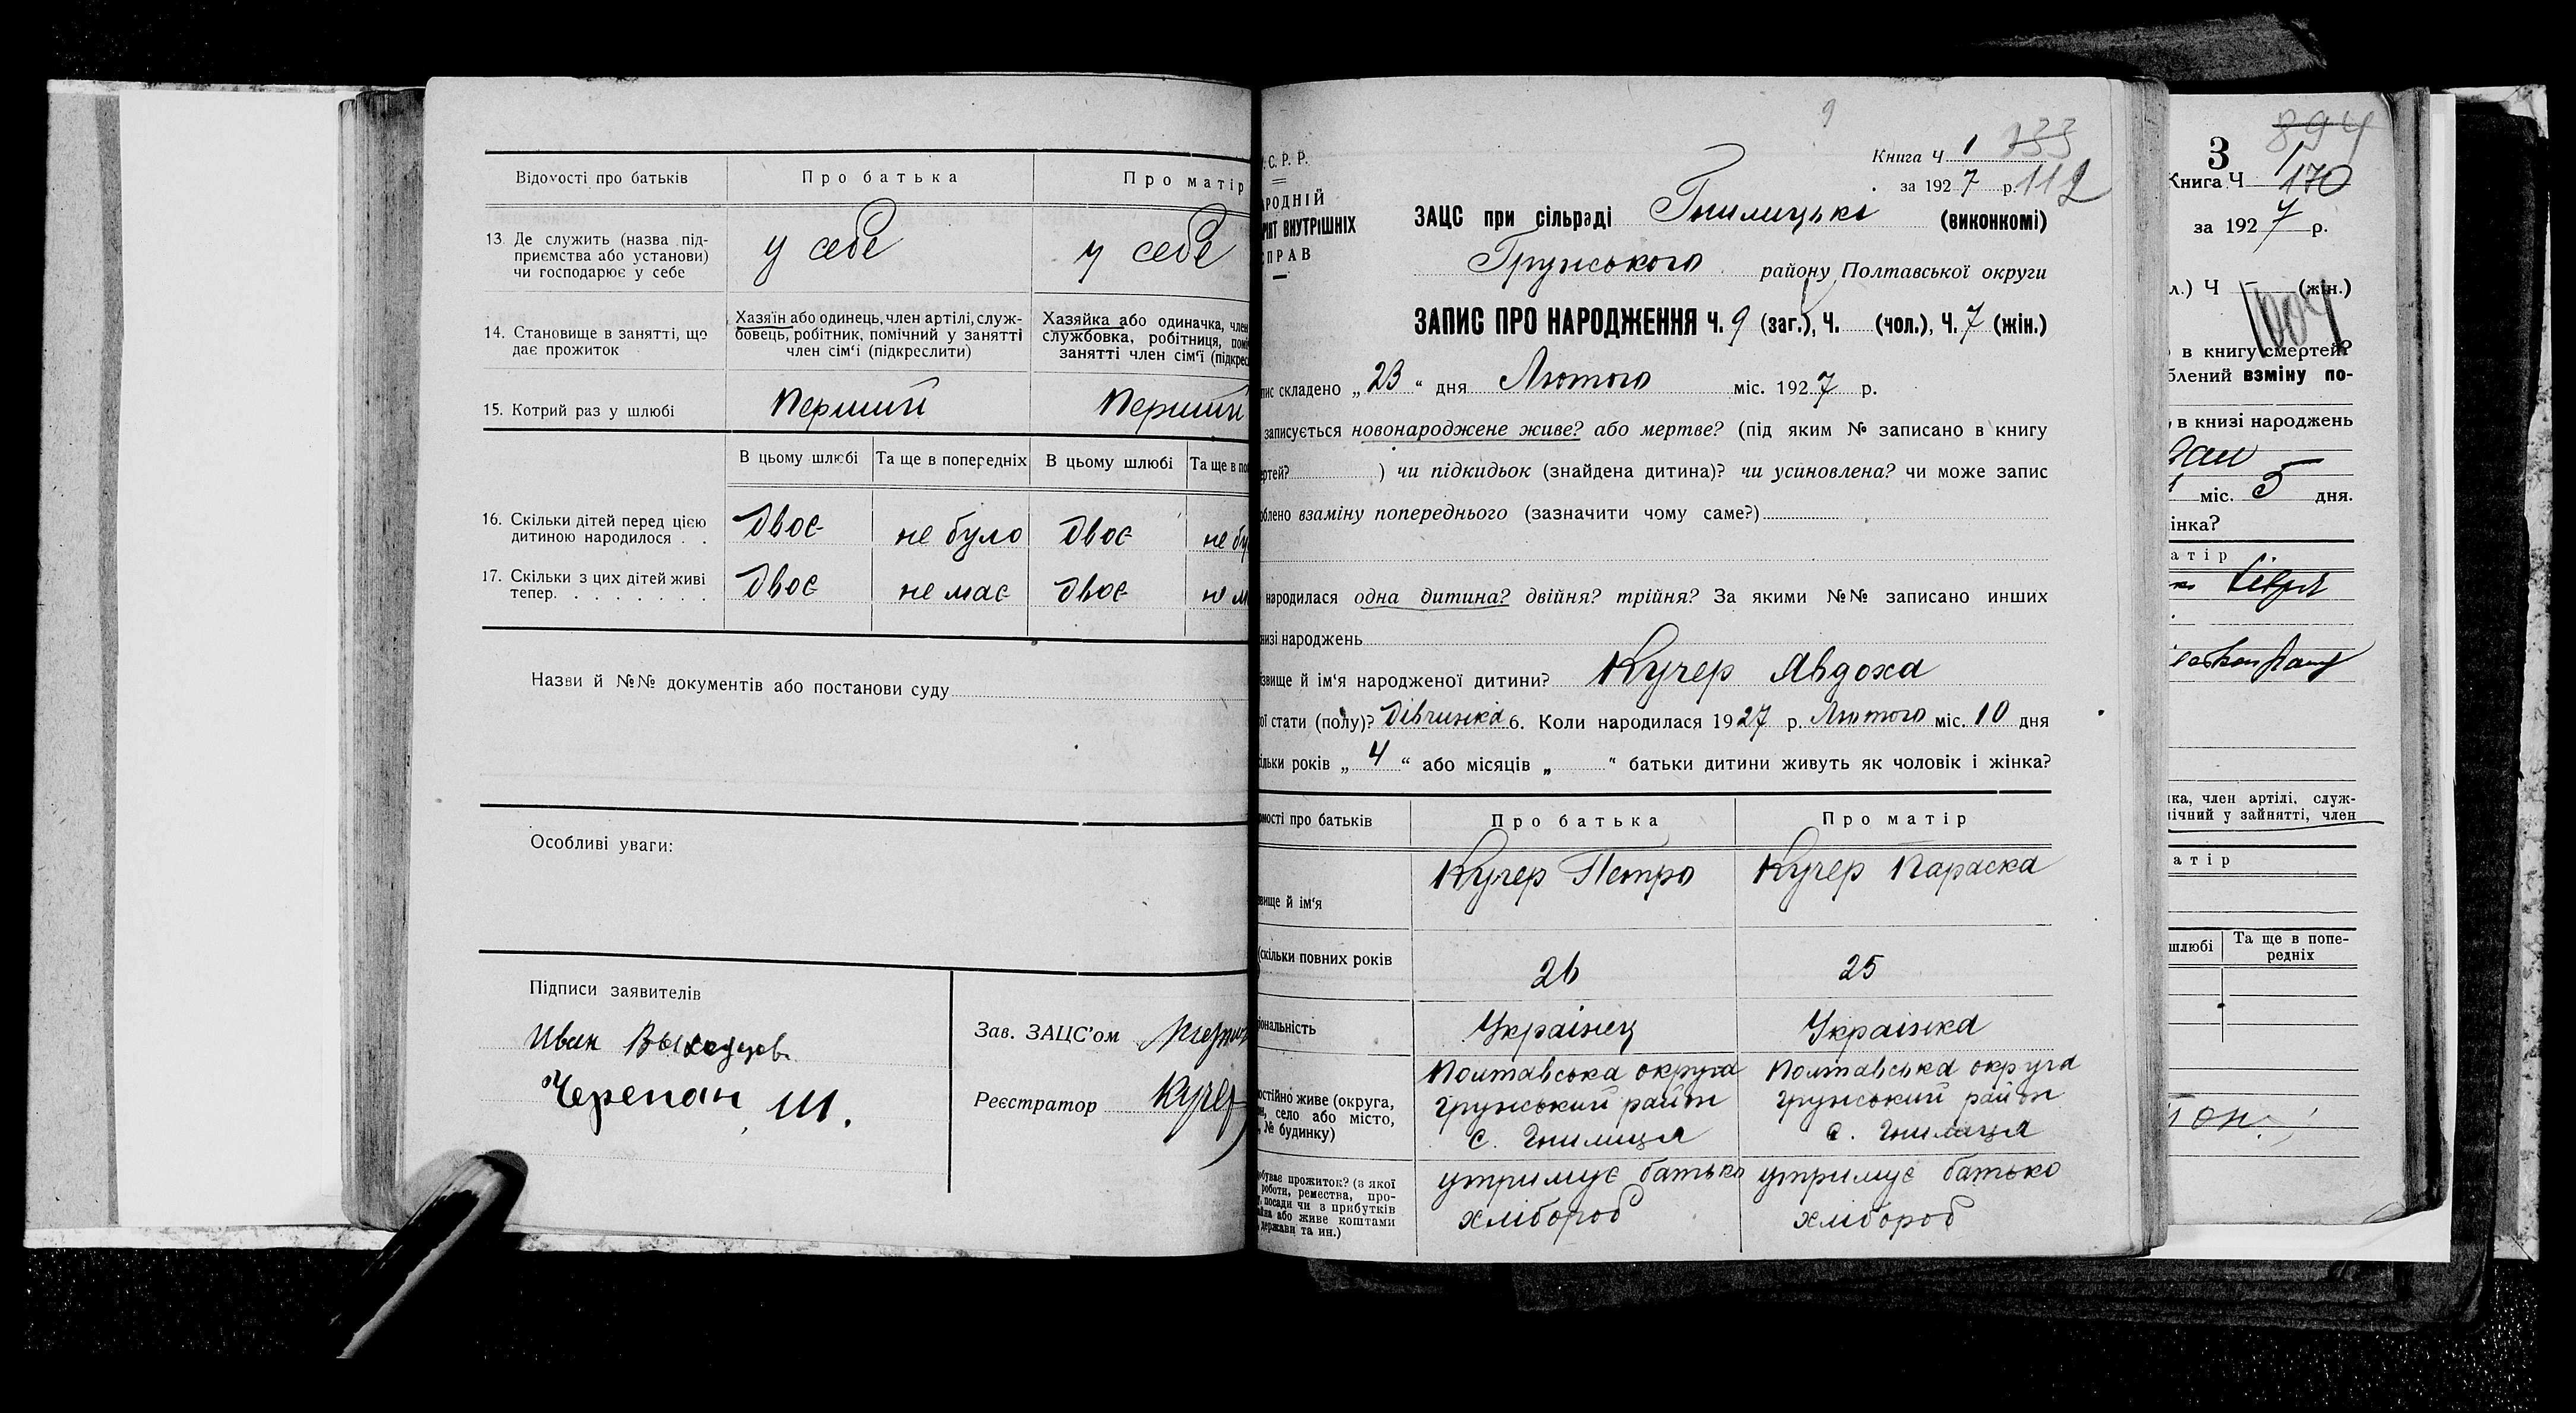 Відомості про батьків
Про батька
Про матір
13. Де служить (назва під-
приємства або установи)
чи господарює у себе
у себе
у себе
14. Становище в занятті, що
дає прожиток
Хазяїн або одинець, член артілі, служ-
бовець, робітник, помічний у занятті
член сім'ї (підкреслити)
Хазяйка або одиначка, член
службовка, робітниця, помі
занятті член сім'ї (підкрес
15. Котрий раз у шлюбі
Перший
Перший
В цьому шлюбі
Та ще в попередніх
В цьому шлюбі
Та ще в по
16. Скільки дітей перед цією
дитиною народилося . .
Двоє
не було
Двоє
не бу
17. Скільки з цих дітей живі
тепер. . . . . . . .
Двоє
не має
Двоє
не м
Назви й №№ документів або постанови суду
Особливі уваги:
Підписи заявителів
Иван
Черепан Ш.
Зав. ЗАЦС'ом
Реєстратор Кучер
9
Книга Ч 1 333
за 1927 р. 112
.С.Р.Р.
АРОДНІЙ
РІЯТ ВНУТРІШНІХ
ПРАВ
ЗАЦС при сільраді Гнилицькі (виконкомі)
Грунського району Полтавської округи
ЗАПИС ПРО НАРОДЖЕННЯ Ч. 9 (заг.), Ч. (чол.), Ч. 7 (жін.)
пис складено „23“ дня Лютого міс. 1927 р.
записується новонароджене живе? або мертве? (під яким № записано в книгу
ертей? ) чи підкидьок (знайдена дитина)? чи усиновлена? чи може запис
облено взаміну попереднього (зазначити чому саме?)
народилася одна дитина? двійня? трійня? За якими №№ записано инших
низі народжень
звище й ім'я народженої дитини? Кучер Явдоха
ої стати (полу)? Дівчинка 6. Коли народилася 1927 р. Лютого міс. 10 дня
ільки років „4“ або місяців „ “ батьки дитини живуть як чоловік і жінка?
омості про батьків
Про батька
Про матір
вище й ім'я
Кучер Петро
Кучер Параска
(скільки повних років
26
25
іональність
Українец
Українка
остійно живе (округа,
н, село або місто,
№ будинку)
Полтавська округа
Грунський район
с. Гнилиця
Полтавська округа
Грунський район
с. Гнилиця
обуває прожиток? (з якої
роботи, ремества, про-
посади чи з прибутків
або живе коштами
держави та ин.)
утримує батько
хлібороб
утримує батько
хлібороб
894
3
Книга Ч 1
170
за 1927 р.
л.) Ч (жін.)
1004
в книгу смертей?
блений взміну по-
в книзі народжень
міс. 5 дня.
інка?
атір
ка, член артілі, служ-
ічний у зайнятті, член
атір
шлюбі
Та ще в попе-
редніх